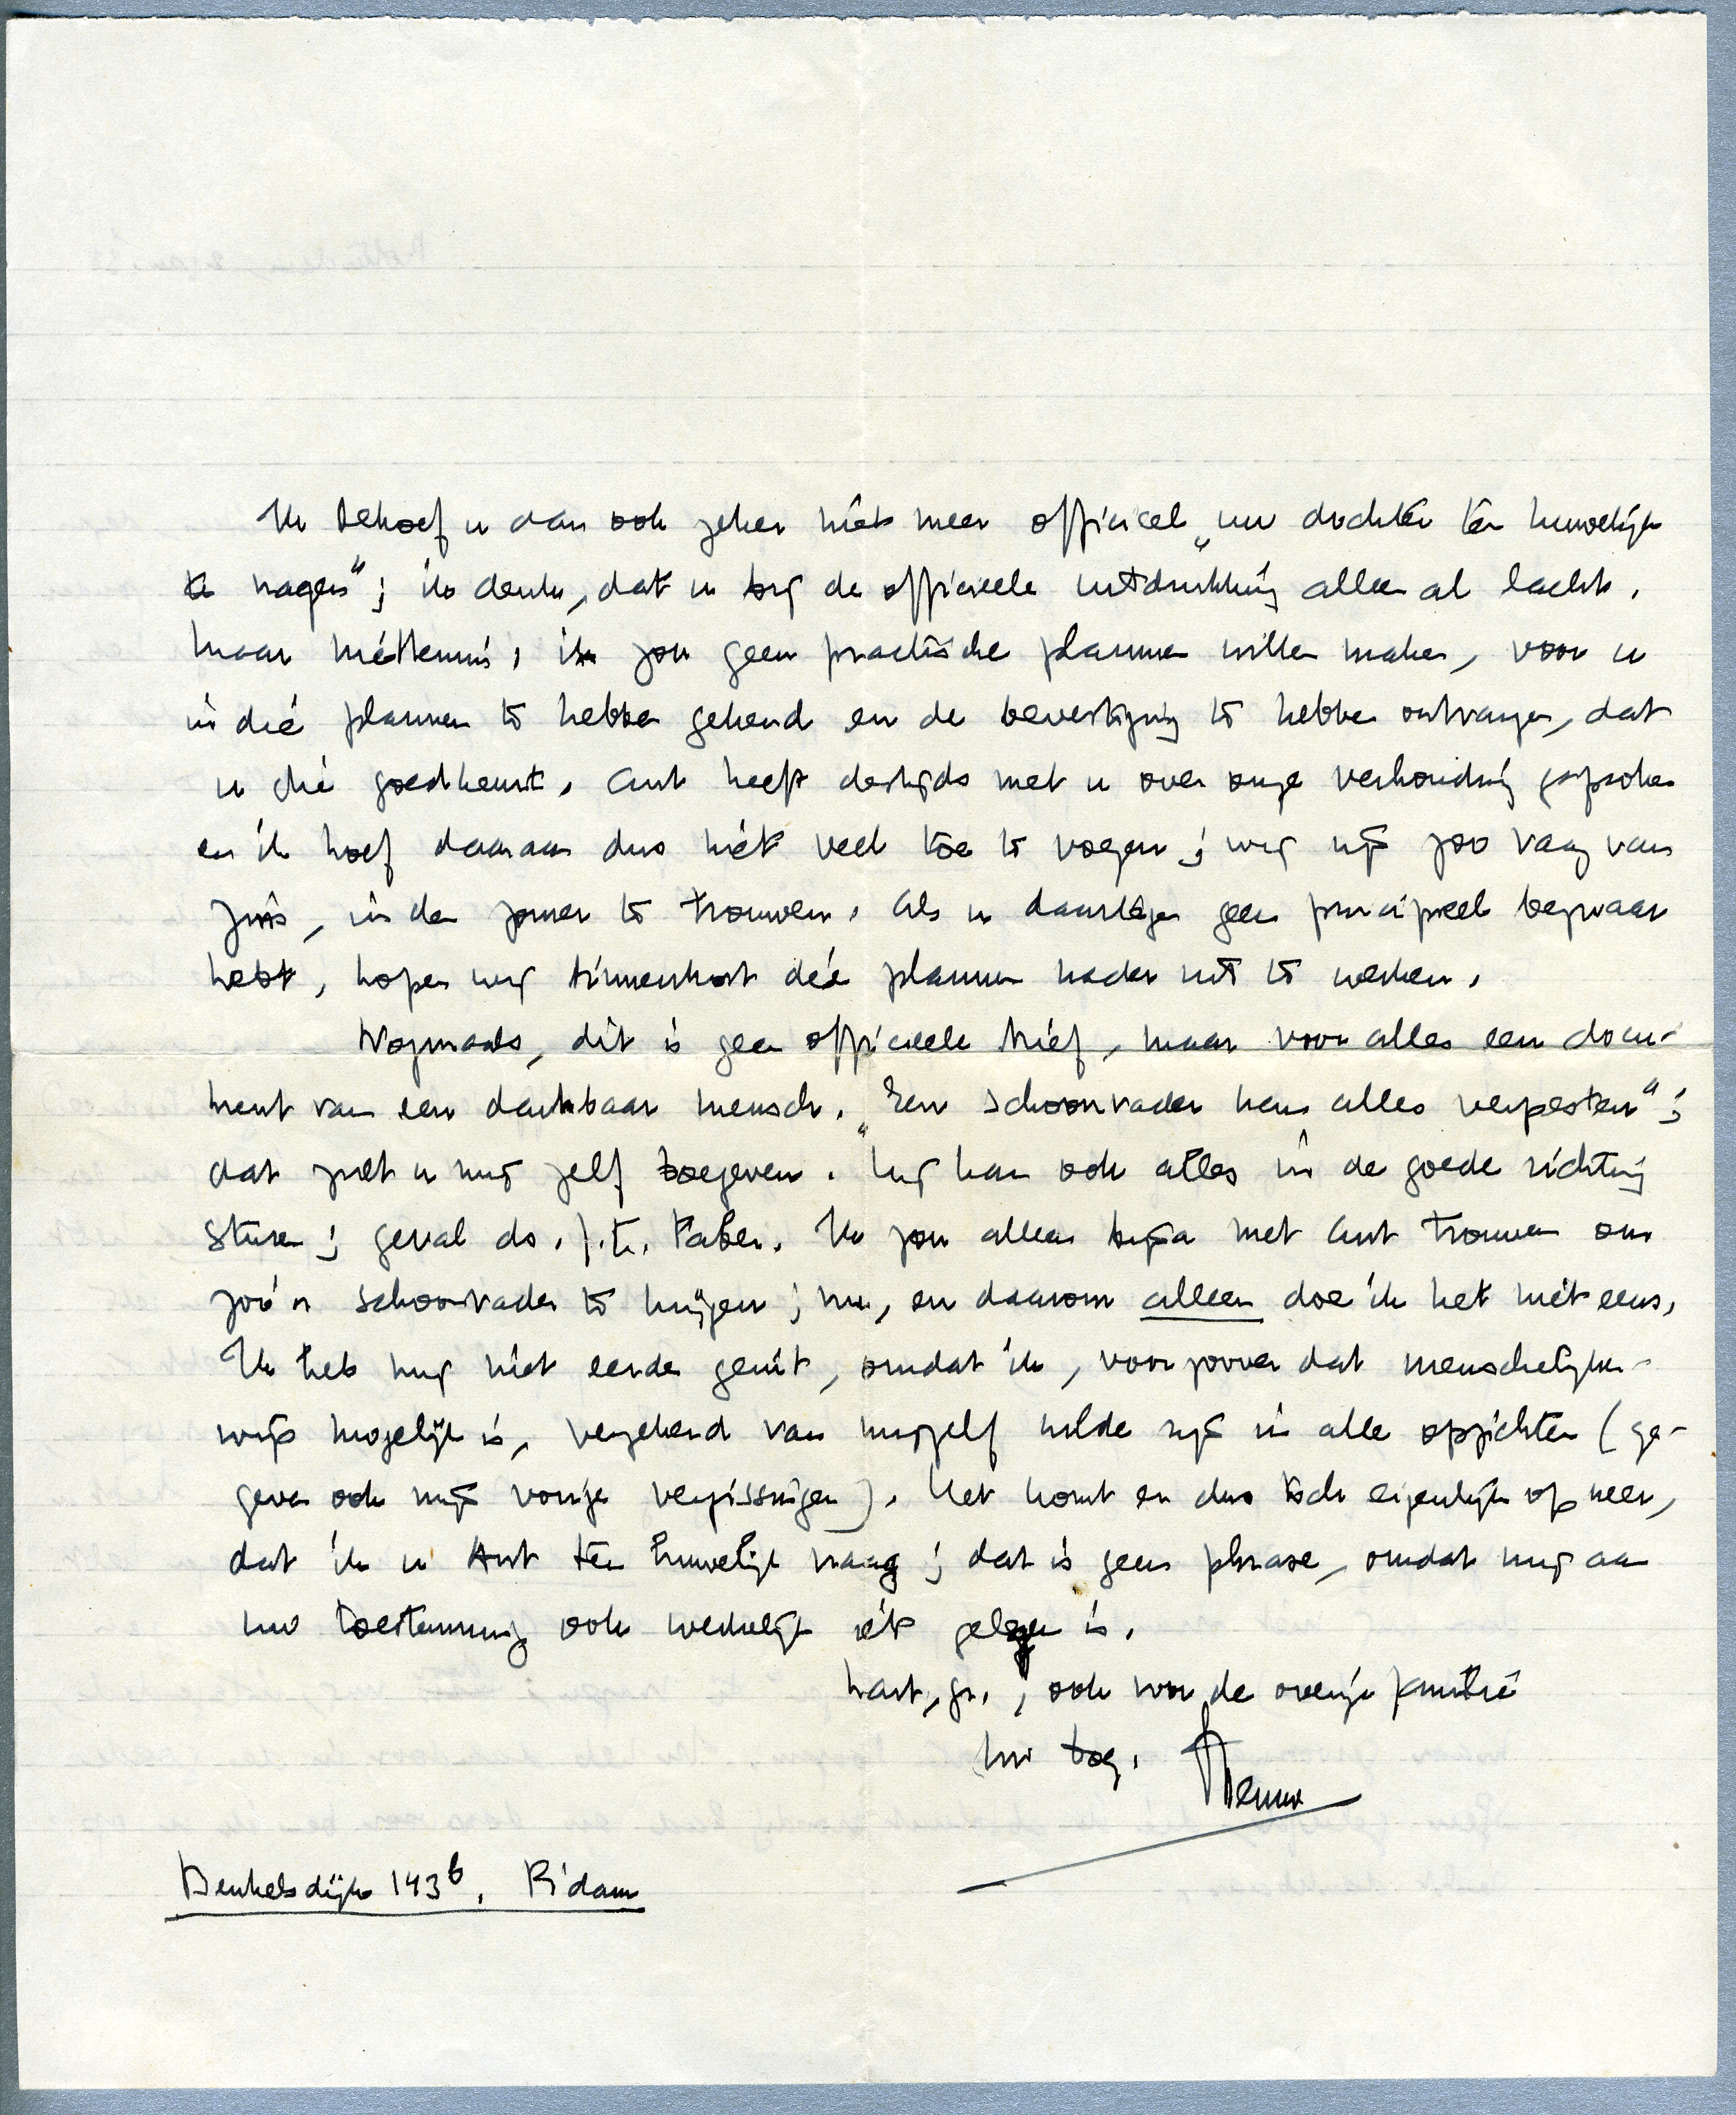 Ik behoef u dan ook zeker niet meer officieel „uw dochter ten huwelijk
te vragen"; ik denk, dat u bij de officieele uitdrukking alleen al lacht.
Maar niettemin, ik zou geen practische plannen willen maken, voor u
in die plannen te hebben gekend en de bevestiging te hebben ontvangen, dat
u die goedkeurt. Ant heeft destijds met u over onze verhouding gesproken
en ik hoef daaraan dus niet veel toe te voegen; wij zijn zoo vaag van
zins, in den zomer te trouwen. Als u daartegen geen principieel bezwaar
hebt, hopen wij binnenkort die plannen nader uit te werken.
Nogmaals, dit is geen officieele brief, maar voor alles een docu-
ment van een dankbaar mensch. „Een schoonvader kan alles verpesten";
dat zult u mij zelf toegeven. Hij kan ook alles in de goede richting
sturen; geval ds. J.t. Faber. Ik zou alleen bijna met Ant trouwen om
zoo'n schoonvader te krijgen; nu, en daarom alleen doe ik het niet eens.
Ik heb mij niet eerder geuit, omdat ik, voor zoover dat menschelijker-
wijs mogelijk is, verzekerd van mijzelf wilde zijn in alle opzichten (ge-
geven ook mijn vorige vergissingen). Het komt er dus toch eigenlijk op neer,
dat ik u Ant ten huwelijk vraag; dat is geen phrase, omdat mij aan
uw toestemming ook werkelijk iets gelegen is.
hart. gr., ook voor de overige familie
uw toeg. Menno
Beukelsdijk 143b, R'dam